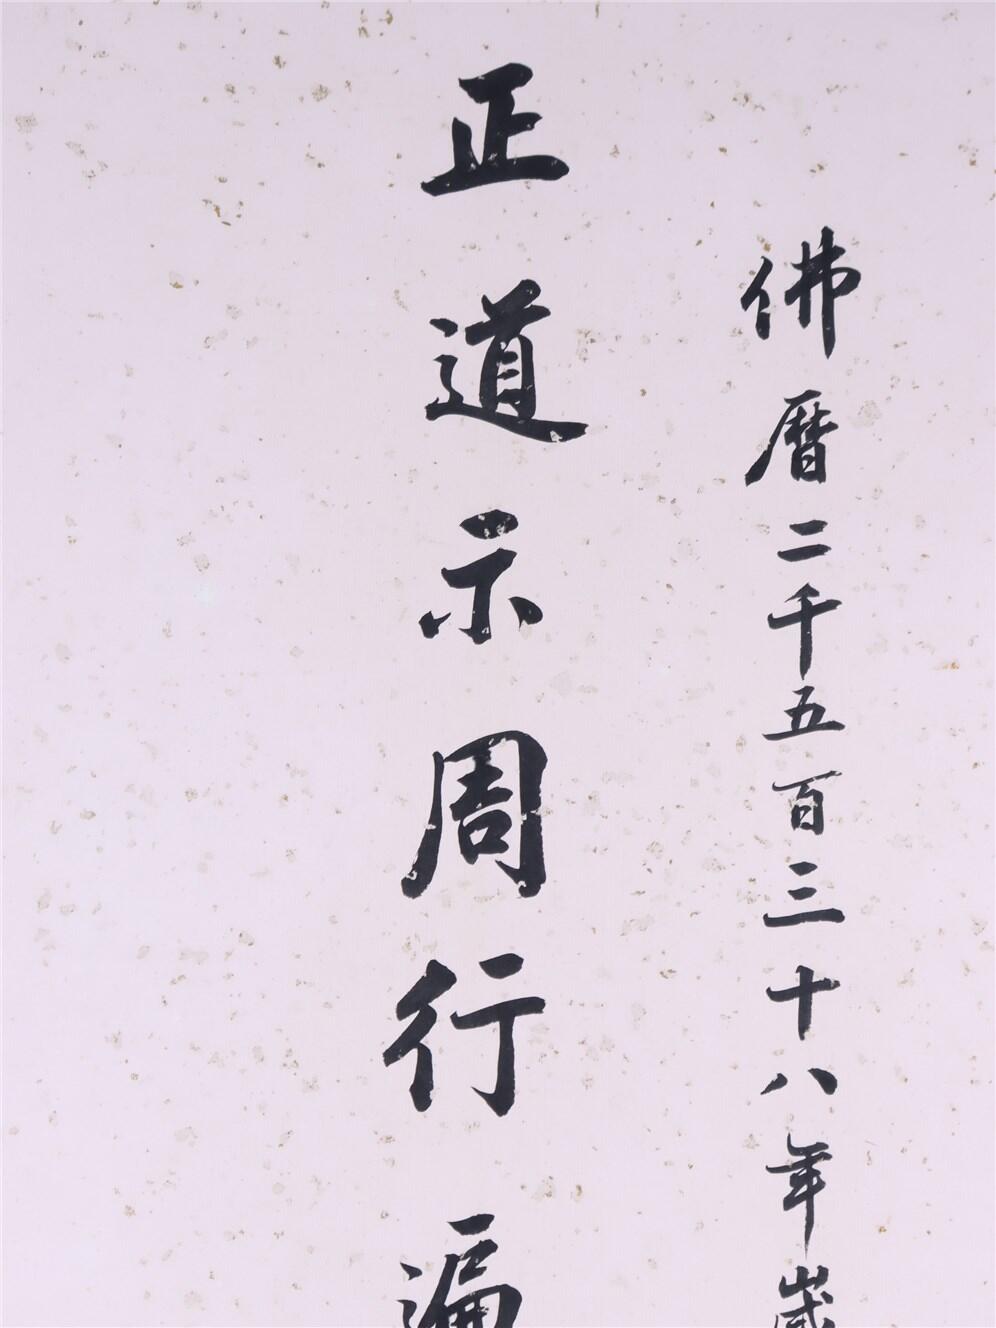 佛曆二千五百三十八年歲
正道示周行遍